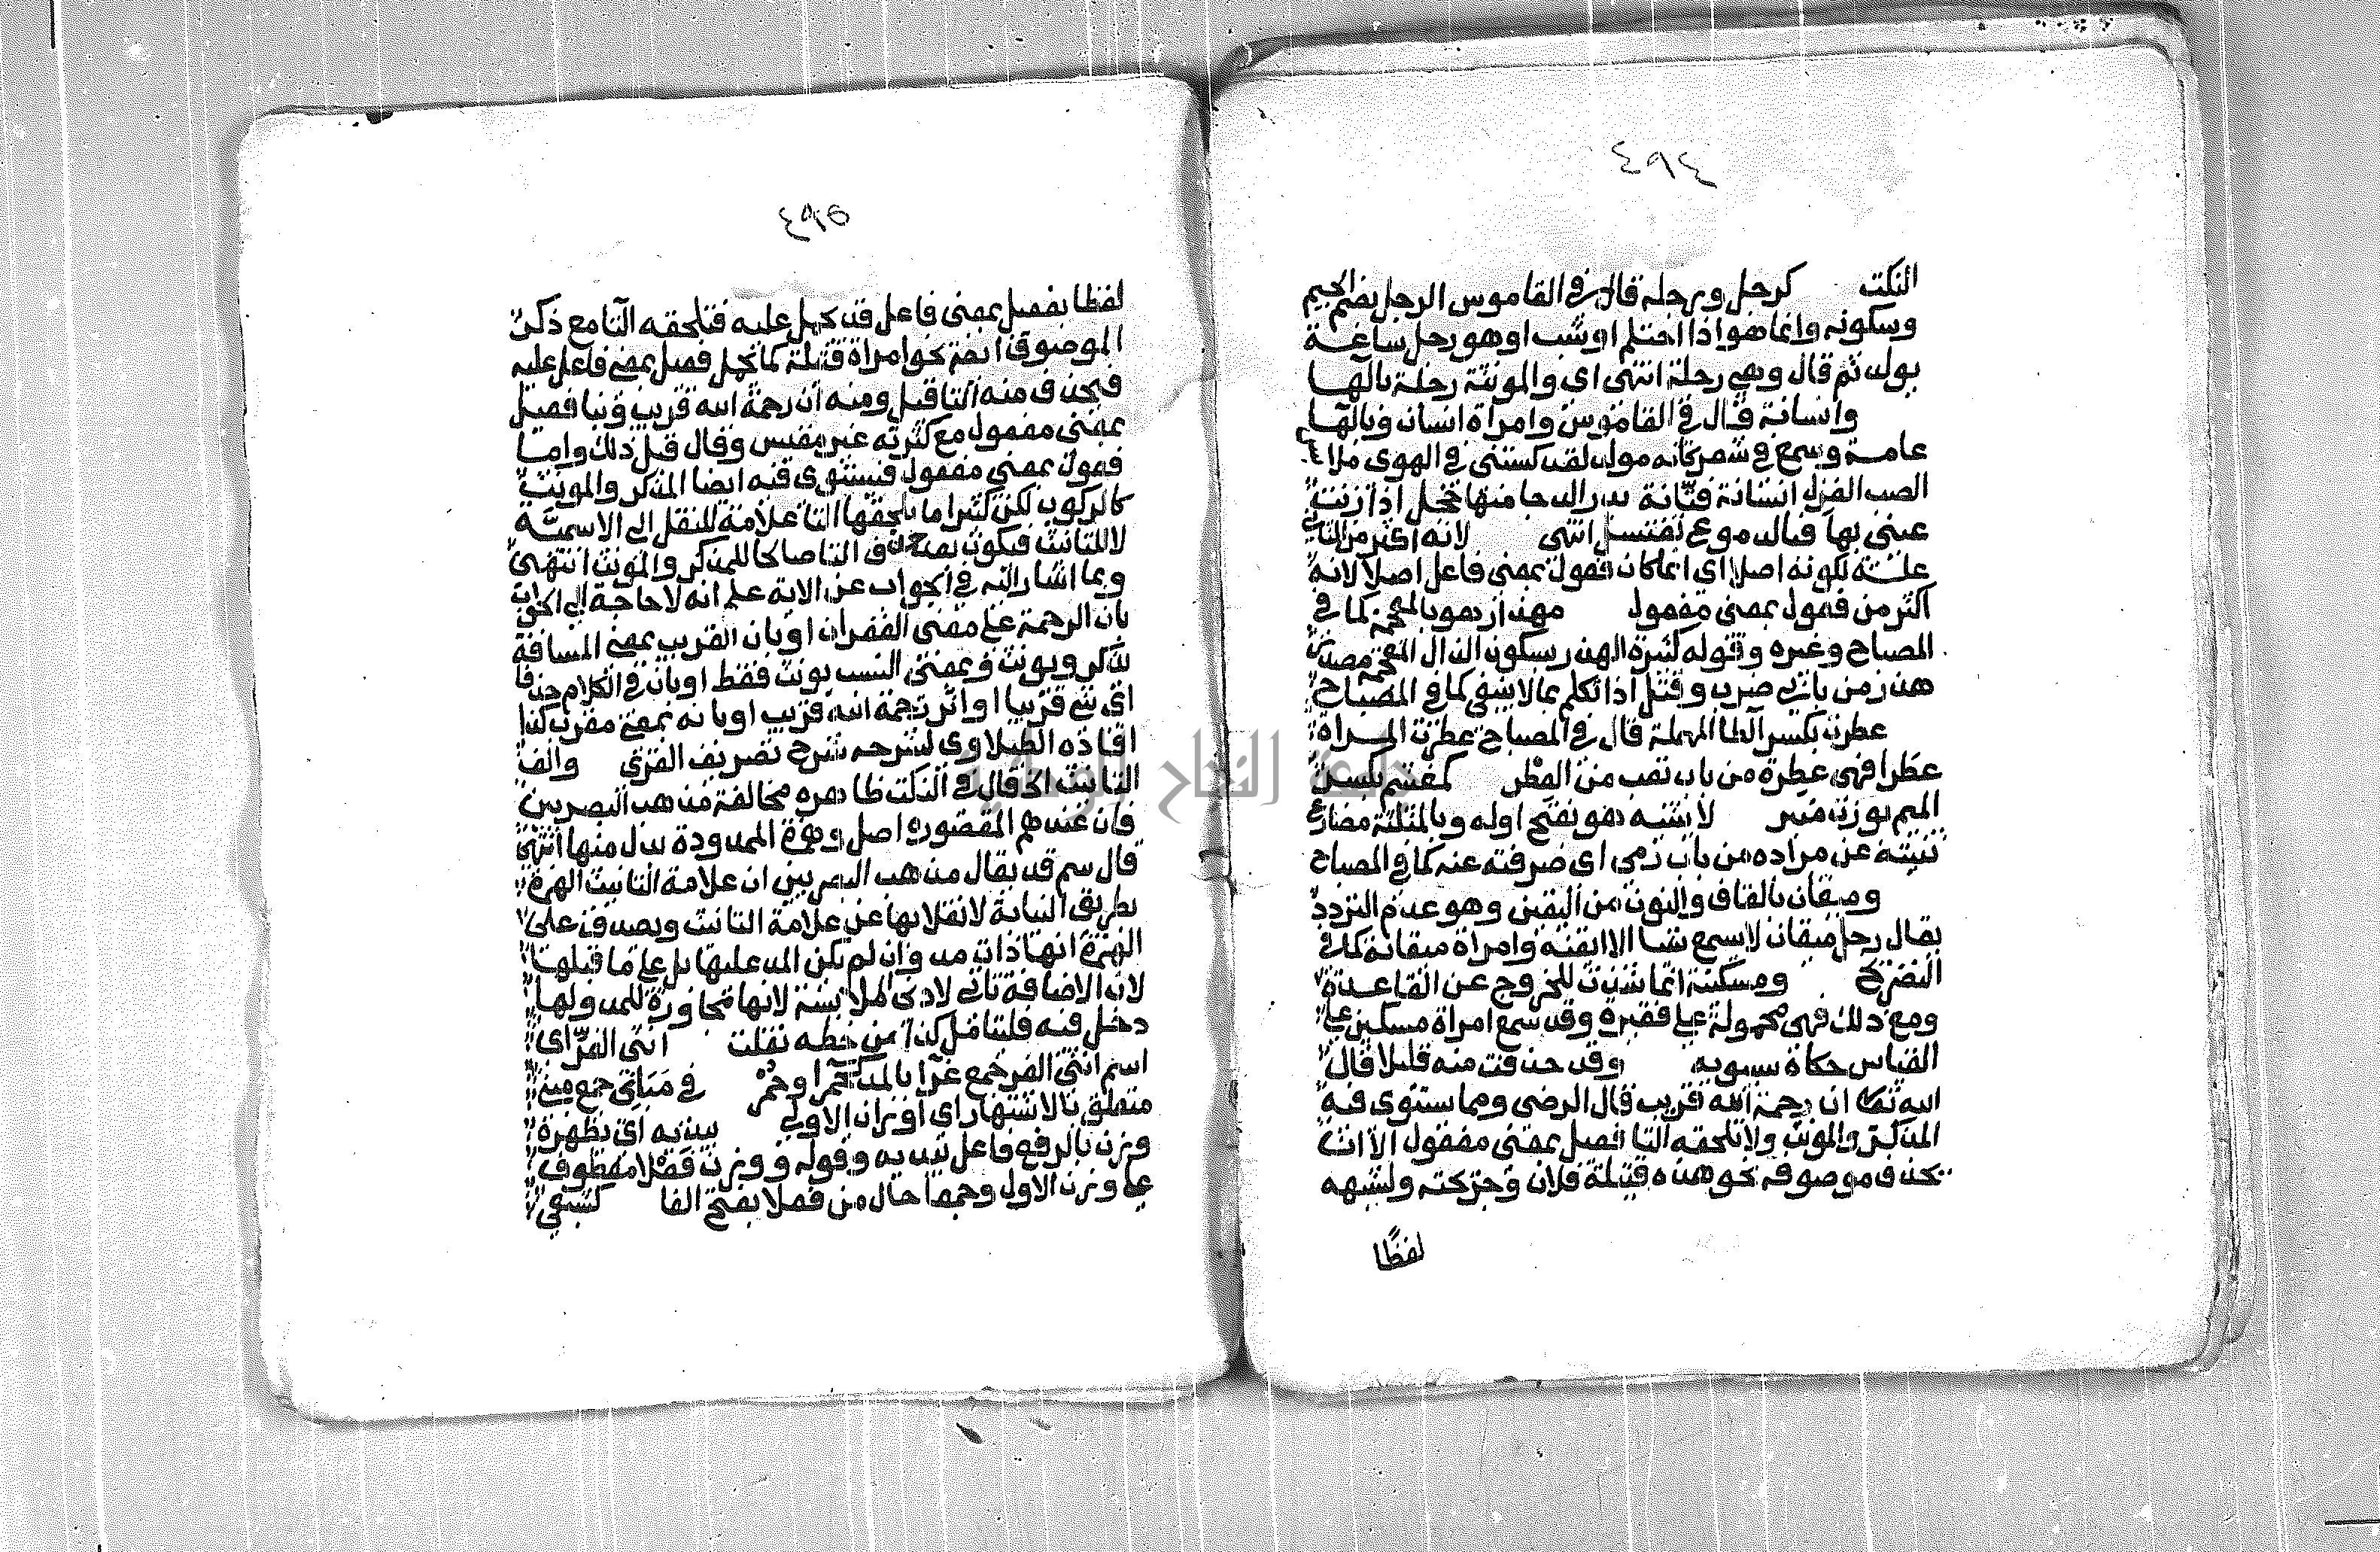 ٤٩٤
النكت كرجل ورجلة قال في القاموس الرجل بضم الجيم
وسكونه وانما هو اذا احتلم او شب او هو رجل ساعة
يولد ثم قال وهي رجلة انتهى اي والمونثة رجلة بالها
وانسانة قال في القاموس وامراة انسان وبالها
عامية وسمع في شعر كانه مولد لقد كستني في الهوى ملابس
الصب الغزل انسانة فتانة بدر الدجا منها خجل اذا زنت
عيني بها فبالدموع تغتسل انتهى لانه اكثر من الثاني
علة لكونه اصلا اي انما كان فعول بمعنى فاعل اصلا لانه
اكثر من فعول بمعنى مفعول مهذار هو بالمعجمة كما في
المصباح وغيره وقوله كثيرة الهذر بسكون الذال المعجمة مصدر
هذر من بابي ضرب وقتل اذا تكلم بما لا ينبغي كما في المصباح
عطرت بكسر الطا المهملة قال في المصباح عطرت المراة
عطرا فهي عطرة من باب تعب من العطر كمغشم بكسر
الميم بوزن منبر لا يثنيه هو بفتح اوله وبالمثلثة مضارع
ثنيته عن مراده من باب رمى اي صرفته عنه كما في المصباح
وميقان بالقاف والنون من اليقين وهو عدم التردد
يقال رجل ميقان لا يسمع شيا الا ايقنه وامراة ميقانة كما في
التصريح ومسكينة انما شذت للخروج عن القاعدة
ومع ذلك فهي محمولة على فقيرة وقد سمع امراة مسكين على
القياس حكاه سيبويه وقد حذفت منه قليلا قال
الله تعالى ان رحمة الله قريب قال الرضى ومما يستوى فيه
المذكر والمونث ولا تلحقه التا فعيل بمعنى مفعول الا ان
يحذف موصوفه نحو هذه قتيلة فلان وجريحته ولشبهه
لفظا
٤٩٥
لفظا بفعيل بمعنى فاعل قد يحمل عليه فتلحقه التا مع ذكر
الموصوف ايضا نحو امراة قتيلة كما يحمل فعيل بمعنى فاعل عليه
فيحذف منه التا قيل ومنه ان رحمة الله قريب وبنا فعيل
بمعنى مفعول مع كثرته غير مقيس وقال قبل ذلك واما
فعول بمعنى مفعول فيستوى فيه ايضا المذكر والمونث
كالركوب لكن كثيرا ما يلحقها التا علامة للنقل الى الاسمية
لا للتانيث فيكون بعد لحوق التا صالحا للمذكر والمونث انتهى
وبما اشار اليه في الجواب عن الاية علم انه لا حاجة الى الجواب
بان الرحمة على معنى الغفران او بان القريب بمعنى المسافة
يذكر ويونث وبمعنى النسب يونث فقط او بان في الكلام حذفا
اي شي قريب او اثر رحمة الله قريب او بانه بمعنى مقرب كذا
افاده الطبلاوى لشرحه شرح تصريف الغزي والف
التانيث الخ قال في النكت ظاهره مخالفة مذهب البصريين
فان عندهم المقصورة اصل وهمزة الممدودة بدل منها انتهى
قال سم قد يقال مذهب البصريين ان علامة التانيث الهمزة
بطريق النيابة لانقلابها عن علامة التانيث ويصدق على
الهمزة انها ذات مد وان لم يكن المد عليها بل على ما قبلها
لان الاضافة تاتي لادنى الملابسة لانها مجاورة للمد ولها
دخل فيه فليتامل كذا من خطه نقلت انثى الغر اي
اسم انثى الغر جمع غرا بالمد كحمرا وحمر في مباني جمع مبنى
متعلق بالاشتهار اي اوزان الاولى يبديه اي يظهره
وزن بالرفع فاعل يبديه وقوله ووزن فعلا معطوف
على وزن الاول وجمعا حال من فعلا بفتح الفا كشبعى